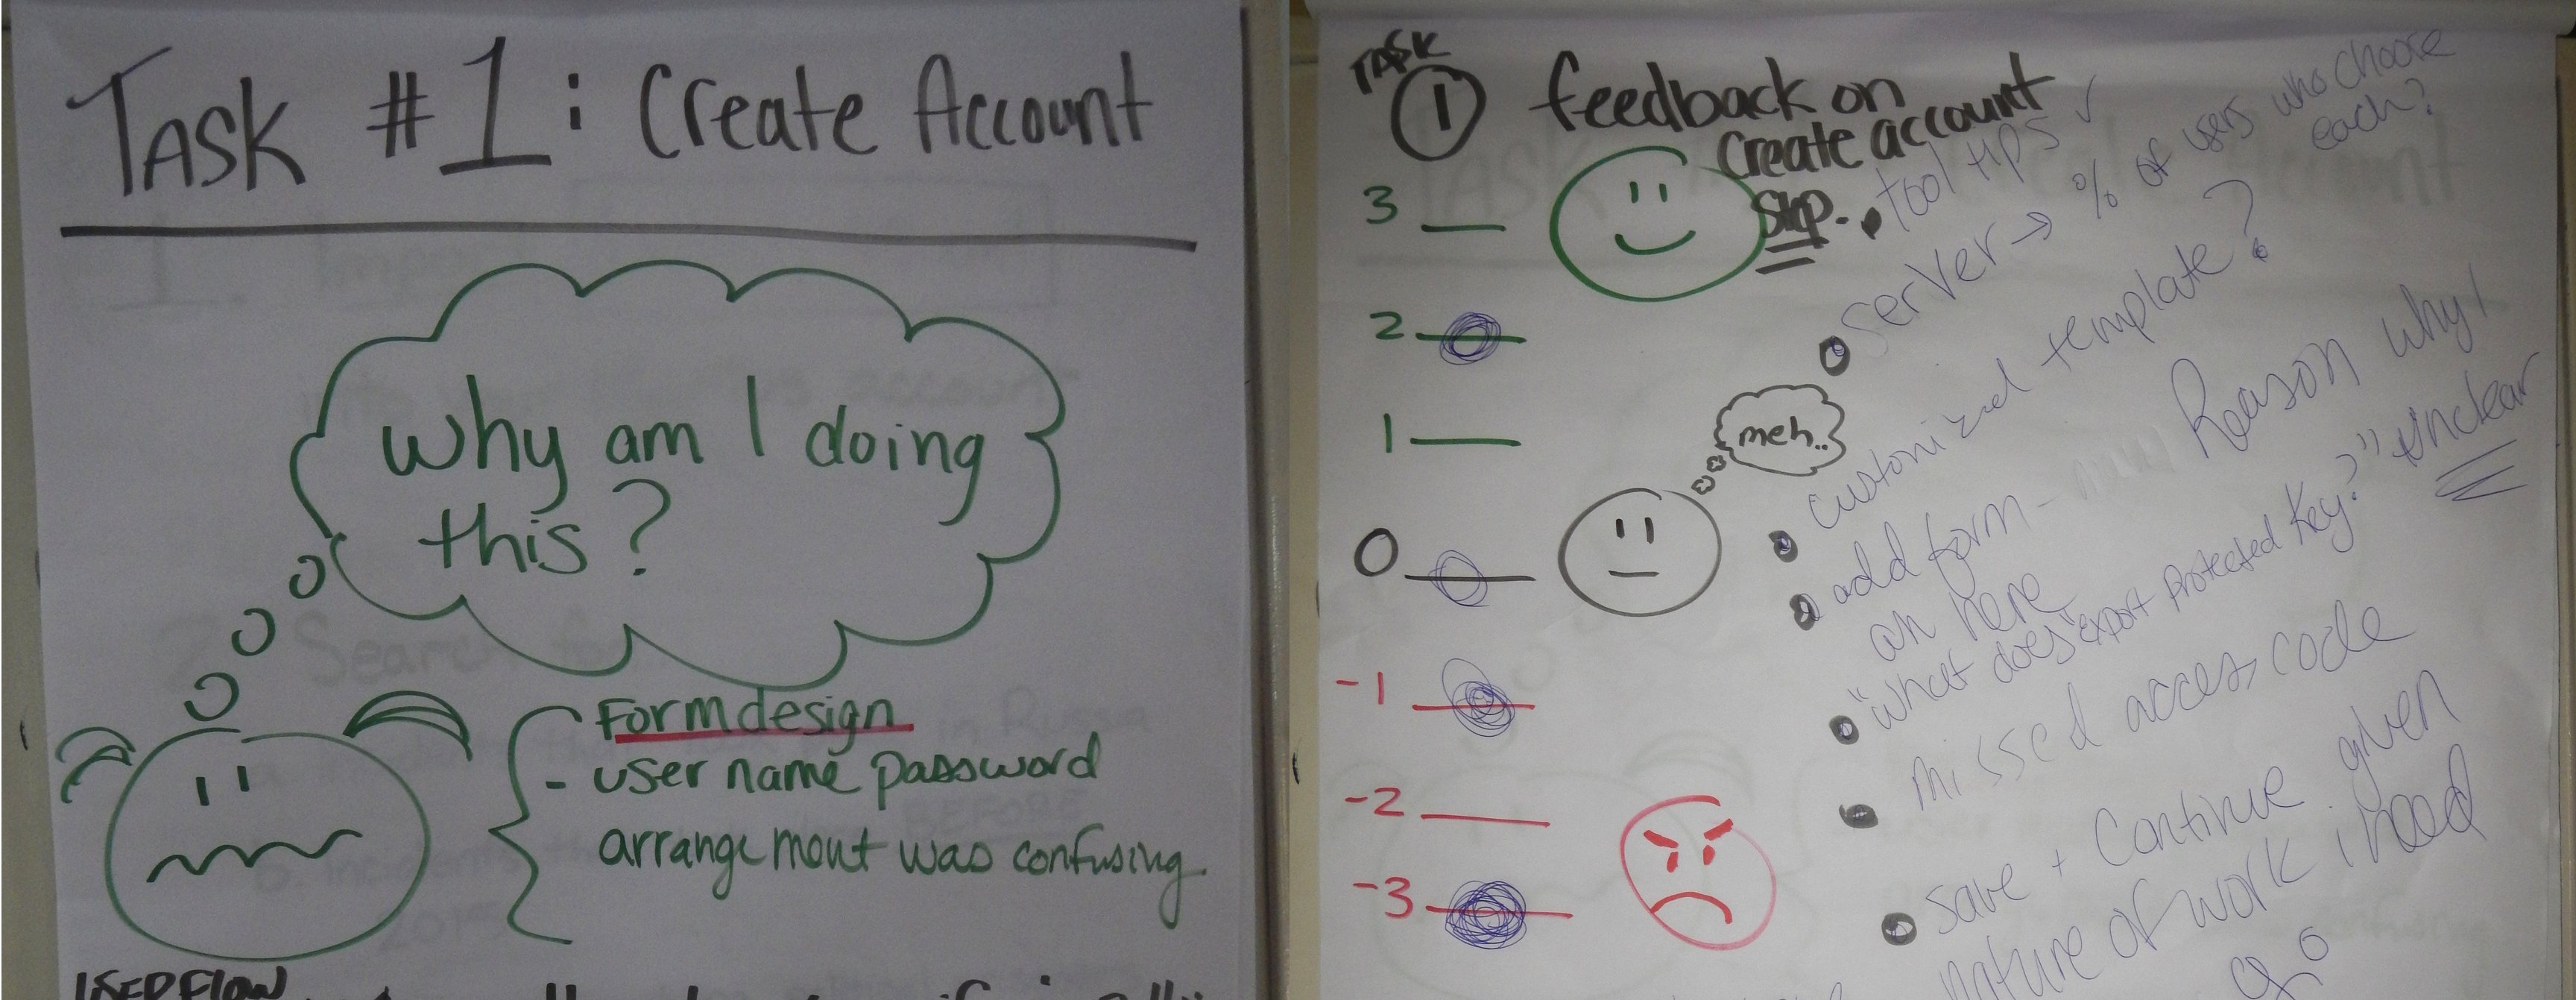 Task #1: Create Account
why am I doing
this?
Form design
- user name password
arrangement was confusing.
USER FLOW
TASK
1 feedback on
create account
step.
3
2
1
0
-1
-2
-3
meh..
• tool tips ✓
• Server → % of users who choose
each?
• customized template?
• add form - Reason why I
am here
• "what does "export protected key?" unclear
• missed access code
• Save + Continue given
nature of work i need